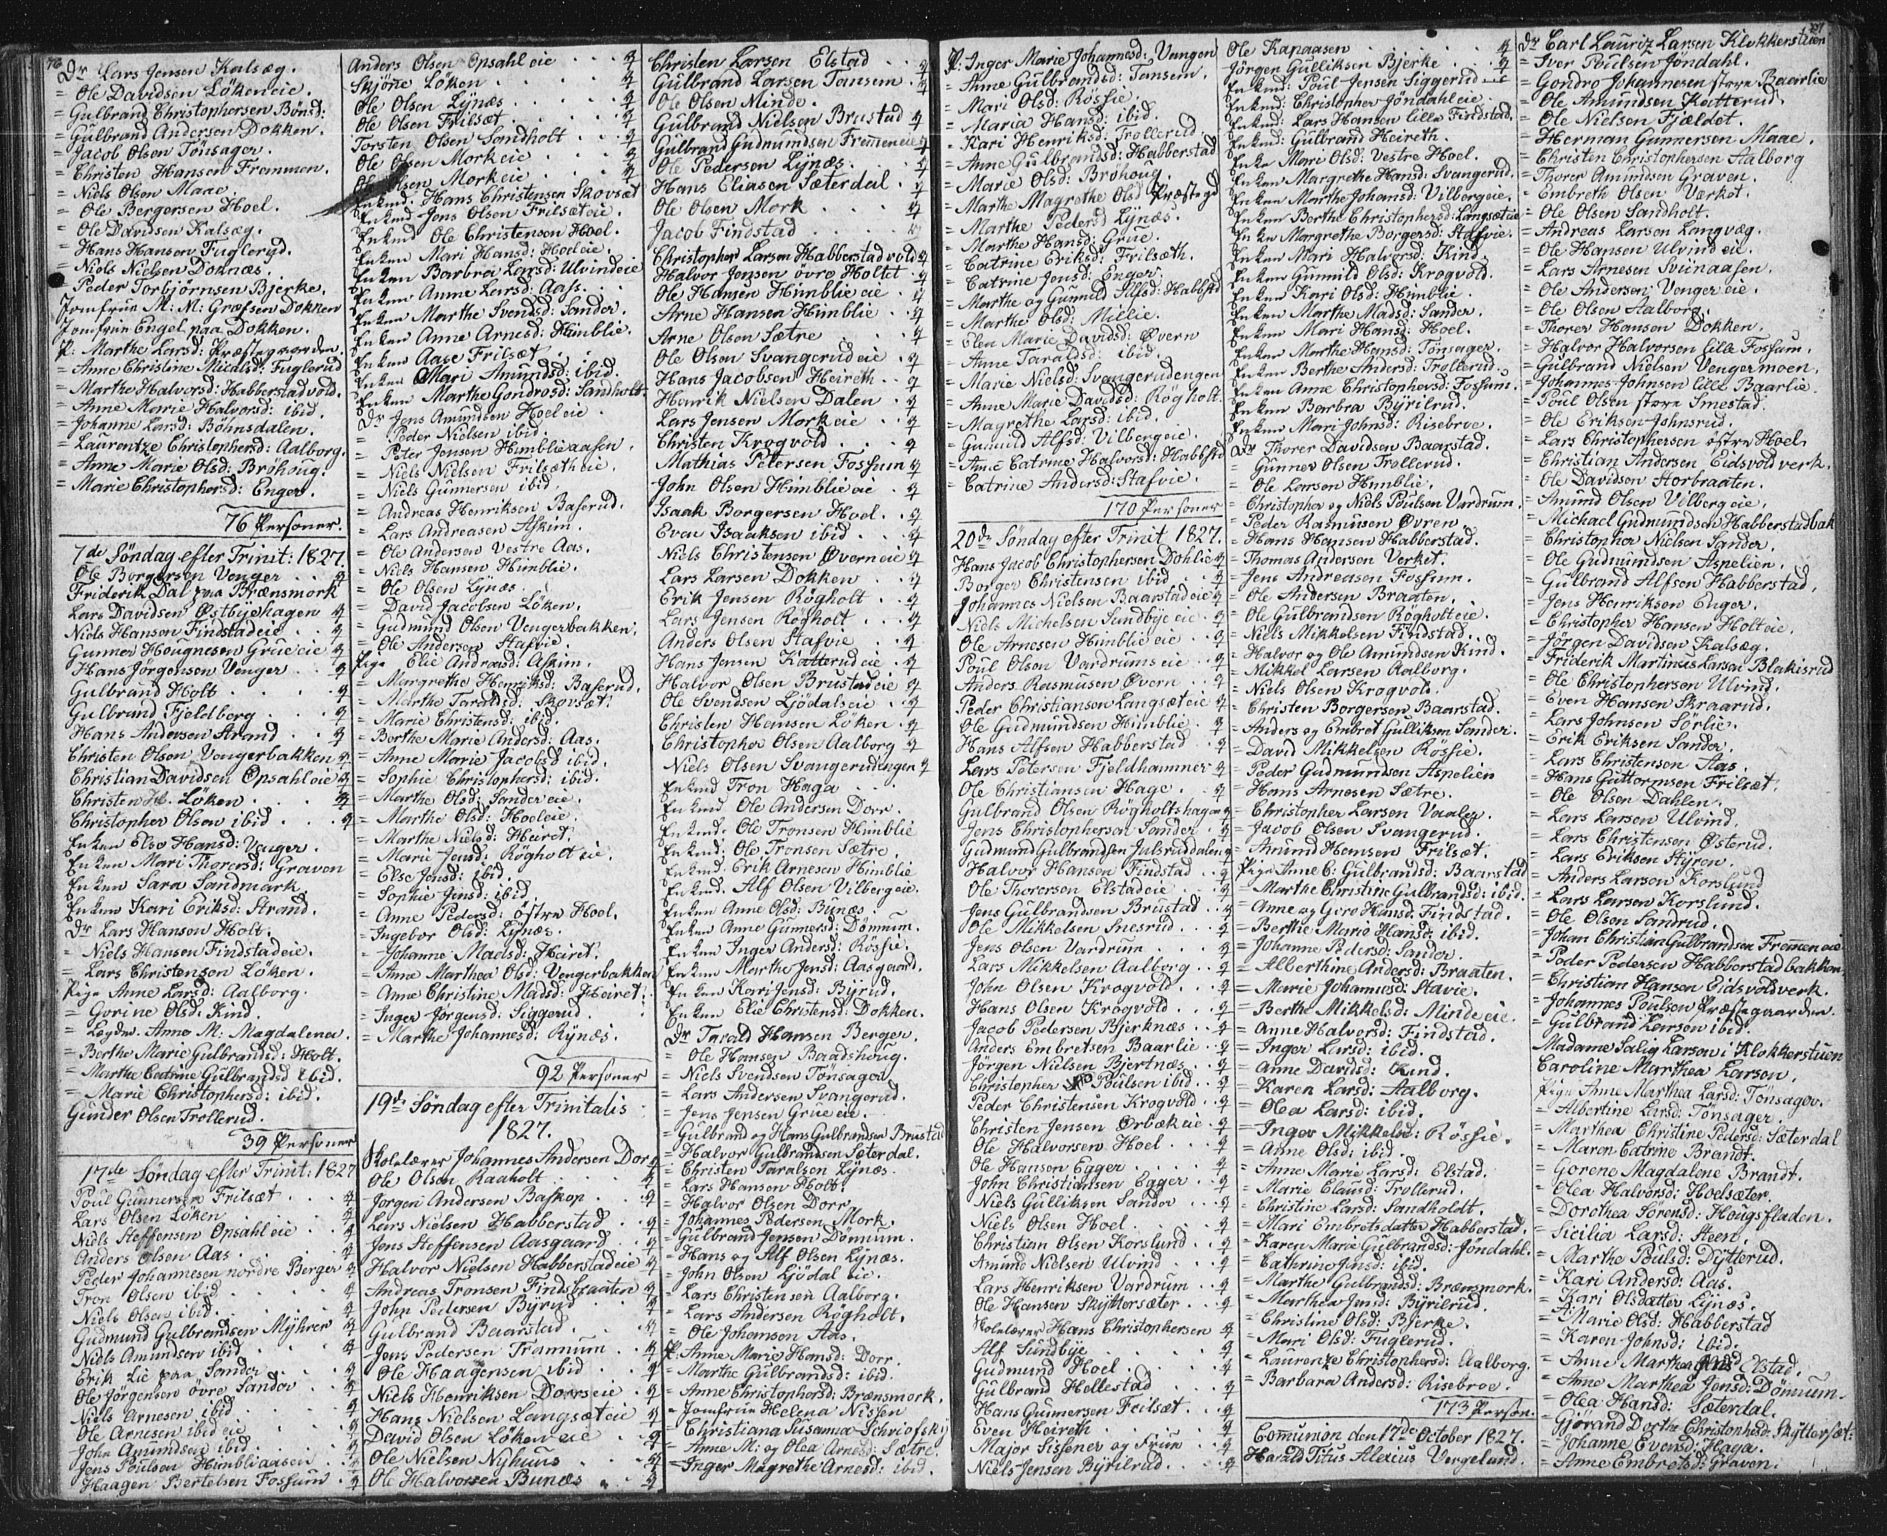 76
Dr Lars Jensen Kalsæg.
= Ole Davidsen Løkeneie.
= Gulbrand Christophersen Bønsd:
= Gulbrand Andersen Dokken.
= Jacob Olsen Tønsager.
= Christen Hansen Fremmen.
= Niels Olsen Maae.
= Ole Bergersen Hoel.
= Ole Davidsen Kalsæg.
= Hans Hansen Fugleryd.
= Niels Nielsen Doknæs.
= Peder Torbjörnsen Bjerke.
Jomfrue M: M: Grafsen Dokken
Jomfrue Engel paa Dokken.
P: Marthe Larsd: Præstegaarden.
= Anne Christine Nicolsd: Fuglerud
= Marthe Halvorsd: Habberstadvold.
= Anne Marie Halvorsd: ibid.
= Johanne Larsd: Böhnsdalen.
= Laurentze Christophersd: Aalborg.
= Anne Marie Olsd: Bröhoug.
= Marie Christophersd: Enger.
76 Personer.
7de Söndag efter Trinit: 1827.
Ole Borgersen Venger . . 4
Friderik Dal paa Brænsmork
Lars Davidsen Østbyehagen 4
Niels Hansen Findstadeie . . 4
Gunner Hougnesen Grueeie 4
Hans Jørgensen Venger . . 4
Gulbrand Holt . . . . 4
Gulbrand Fjeldborg . . . 4
Hans Andersen Strand . . 4
Christen Olsen Vengerbakken 4
Christian Davidsen Opsahleie 4
Christen H. Löken . . . 4
Christopher Olsen ibid . . . 4
Enken Else Hansd: Venger.
Enken Mari Thorersd: Graven
Enken Sara Sandmark.
Enken Kari Eriksd: Strand.
Dr Lars Hansen Holt.
= Niels Hansen Findstadeie.
= Lars Christensen Löken.
Pige Anne Larsd: Aalborg.
= Gorine Olsd: Kind.
= Legdr. Anne M: Magdalenea.
= Berthe Marie Gulbrandsd: Holt.
= Marthe Catrine Gulbrandsd ibid.
= Marie Christophersd: ibid.
Gunder Olsen Trollerud.
39 Personer
17de Söndag efter Trinit: 1827
Poul Gunnersen Frilsæt . . . 4
Lars Olsen Löken . . . . 4
Niels Steffensen Opsahleie . . 4
Anders Olsen Aas . . . . 4
Peder Johannesen nordre Berger 4
Tron Olsen ibid . . . . 4
Niels Olsen ibid . . . . 4
Gudmund Gulbrandsen Myhrer 4
Niels Amundsen ibid . . . 4
Erik Lie paa Sander . . . 4
Ole Jörgensen övre Sandor . . 4
Niels Arnesen ibid . . . 4
Ole Arnesen ibid eie . . . 4
John Amundsen ibid . . . 4
Jens Poulsen Himbliaasen . . 4
Haagen Bertelsen Fossum . . 4
Anders Olsen Opsahleie . . . 4
Skjöne Löken . . . . 4
Ole Olsen Lynæs . . . . 4
Ole Olsen Frilsæt . . . . 4
Torsten Olsen Sandholt . . . 4
Ole Olsen Morkeie . . . 4
Ole Olsen Morkeie . . . 4
Enkmd. Hans Christensen Skovsæt
Enkmd Jens Olsen Frilsæteie.
Enkmd Ole Christensen Hoel.
Enken Mari Hansd: Hoeleie.
Enken Barbra Larsd: Ulvindeie
Enken Anne Larsd: Aass.
Enken Marthe Svendsd: Sander.
Enken Anne Arnesd: Himblie.
Enken Aase Frilsæt.
Enken Mari Amundsd: ibid.
Enken Marthe Gondrosd: Sandholt.
Dr Jens Amundsen Hoeleie.
= Peder Nielsen ibid.
= Peter Jensen Himblieaasen.
= Niels Nielsen Frilsætheie.
= Niels Gunnersen ibid.
= Andreas Henriksen Baserud.
= Lars Andreasen Askim.
= Ole Andersen Vestre Aas.
= Niels Hansen Himblie.
= Ole Olsen Lynæs.
= David Jacobsen Löken.
= Gudmund Olsen Vengerbakken.
= Ole Andersen Stafvie.
Pige Elie Andreasd: Askim.
= Margrethe Henriksd: Baserud.
= Marthe Taraldsd: Skovsæt.
= Marie Christensd: ibid.
= Berthe Marie Andersd: Aas.
= Anne Marie Jacobsd ibid.
= Sophie Christophersd: ibid.
= Marthe Olsd: Sandereie.
= Marthe Olsd: Hoeleie.
= Marthe Nielsd: Heiret.
= Marie Jensd: Rögholteie.
= Else Jensd: ibid.
= Sophie Jensd: ibid.
= Anne Pedersd: östre Hoel.
= Ingebor Olsd: Lynæs.
= Johanne Madsd: Heiret.
= Anne Marthea Olsd: Vengerbakken
= Anne Christine Madsd: Heiret.
= Inger Jörgensd: Siggerud.
= Marthe Johannesd: Rynæs.
92 Personer
19de Söndag efter Trinitatis
1827.
Skolelærer Johannes Andersen Dorr 4
Ole Olsen Raaholt . . . 4
Jörgen Andersen Baskop . . . 4
Lars Nielsen Habberstad . . 4
Jens Steffensen Aasgaard . . 4
Halvor Nielsen Habberstadeie . 4
Andreas Tronsen Findsbraaten 4
John Pedersen Byrud . . . 4
Gulbrand Baarstad . . . 4
Jens Pedersen Trannum . . 4
Ole Haagensen ibid . . . 4
Niels Henriksen Dorrseie . . 4
Hans Nielsen Langsæteie . 4
David Olsen Lökeneie . . 4
Ole Nielsen Nyhuus . . . 4
Ole Halvorsen Bunæs . . 4
Christen Larsen Elstad . . 4
Gulbrand Larsen Tansem . . 4
Ole Olsen Minde . . . . 4
Gulbrand Nielsen Brustad 4
Gulbrand Gudmundsen Fremeneie 4
Ole Pedersen Lynæs . . . 4
Hans Eliasen Sæterdal . . 4
Ole Olsen Mork . . . . 4
Jacob Findstad . . . . 4
Christopher Larsen Habberstadvold 4
Halvor Jensen övre Holtet . 4
Ole Hansen Himblie eie . . 4
Arne Hansen Himblie . . 4
Arne Olsen Sætre . . . 4
Ole Olsen Svangerudeie . . 4
Hans Jacobsen Heireth . . 4
Henrik Nielsen Dalen . . 4
Lars Jensen Morkeie . . . 4
Christen Krogvold . . . 4
Mathias Petersen Fossum 4
John Olsen Himblieeie . . 4
Isaak Borgersen Hoel . . 4
Even Isaaksen ibid . . . 4
Niels Christensen Øverneie 4
Lars Larsen Dokken . . . 4
Erik Jensen Rögholt . . . 4
Lars Jensen Rögholt . . . 4
Anders Olsen Stafvie . . . 4
Hans Jensen Katterudeie . . 4
Halvor Olsen Brustadeie 4
Ole Svendsen Ljödalseie . . 4
Christen Hansen Löken . . 4
Christopher Olsen Aalborg 4
Niels Olsen Svangerudengen 4
Enkmd Tron Haga . .
Enkmd Ole Andersen Dorr.
Enkmd. Ole Tronsen Himblie
Enkmd: Ole Tronsen Sætre.
Enkmd. Erik Arnesen Himblie
Enkmd. Alf Olsen Vilbergeie.
Enken Anne Olsd: Bunæs.
Enken Anne Gunnersd: Dönnum.
Enken Inger Andersd: Rössie.
Enken Marthe Jensd: Aasgaard.
Enken Kari Jensd: Byrud.
Enken Elie Christensd: Dokken.
Dr Tarald Hansen Berger.
= Ole Hansen Baadshoug.
= Niels Svendsen Tönsager.
= Lars Andersen Svangerud.
= Jens Jensen Grueeie.
= Gulbrand og Hans Gulbrandsen Brustad
= Halvor Gulbrandsen Sæterdal.
= Christen Taralsen Lynæs.
= Lars Hansen Holt.
= Halvor Olsen Dorr.
= Johannes Pedersen Mork.
= Gulbrand Jensen Dönnum.
= Hans og Alf Olsen Lynæs.
= John Olsen Ljödaleie.
= Lars Christensen Aalborg.
= Lars Andersen Rögholt.
= Ole Johansen Aas.
P. Anne Marie Hansd: Dorr.
= Marthe Gulbrandsd: ibid.
= Anne Christophersd: Brænsmork.
= Jomfrue Helena Nissen
= Christiana Susanna Schiofsky
= Anne M: og Olea Arnesd: Sætre.
= Inger Magrethe Arnesd: ibid.
P: Inger Marie Johannesd: Vangen
= Anne Gulbrandsd: Tansem.
= Mari Olsd: Rössie.
= Maria Hansd: ibid.
= Kari Henriksd: Trollerud.
= Anne Gulbrandsd: Habberstad
= Marie Olsd: Bröhoug.
= Marthe Magrethe Olsd Præstegd
= Marthe Pedersd Lynæs.
= Marthe Hansd: Grue.
= Catrine Eriksd: Frilseth.
= Catrine Jensd: Enger.
= Marthe og Gunnild Alfsd: Habbstd
= Marthe Olsd: Mielie.
= Elen Marie Davidsd: Øvern
= Anne Taraldsd: ibid.
= Marie Nielsd: Svangerudengen
= Anne Marie Davidsd: Rögholt.
= Magrethe Larsd: ibid.
= Gunnild Alfsd: Vilbergeie.
= Anne Catrine Halvorsd: Habbstd
= Catrine Andersd: Stafvie.
170 Personer
20de Söndag efter Trinit 1827.
Hans Jacob Christophersen Dohlie 4
Borger Christensen ibid . . 4
Johannes Nielsen Baarstadeie 4
Niels Michelsen Sundbyeeie . 4
Ole Arnesen Himblieeie . . 4
Poul Olsen Vardrumseie . . 4
Anders Rasmusen Øvern . . 4
Peder Christiansen Langsæteie 4
Ole Gudmundsen Himblie . 4
Hans Alfsen Habberstad . 4
Lars Petersen Fjeldhammer 4
Ole Christiansen Hage . . 4
Gulbrand Olsen Rögholtshagen 4
Jens Christophersen Sander . 4
Gudmund Gulbrandsen Julsruddalen 4
Halvor Hansen Findstad . 4
Ole Thorersen Elstadeie . . 4
Jens Gulbrandsen Brustad . . 4
Ole Mikkelsen Snesrud . . 4
Jens Olsen Vardrum . . . 4
Lars Mikkelsen Aalborg . . 4
John Olsen Krogvold . . . 4
Hans Olsen Krogvold . . . 4
Jacob Pedersen Bjerknæs . . 4
Anders Embretsen Baarlie . . 4
Jörgen Nielsen Bjertnæs . . 4
Christopher Poulsen ibid . . 4
Peder Christensen Krogvold . 4
Christen Jensen Ørbækeie . . 4
Ole Halvorsen Hoel . . . 4
Ole Hansen Egger . . . 4
John Christiansen Egger . . 4
Niels Gulliksen Sander . . 4
Niels Olsen Hoel . . . 4
Christian Olsen Korslund . . 4
Amund Nielsen Ulvind . . 4
Lars Henriksen Vardrum . . 4
Ole Hansen Skyttersæter . . 4
Skolelærer Hans Christophersen 4
Alf Sundbye . . . . 4
Gudmund Hoel . . . . 4
Gulbrand Hellestad . . . 4
Hans Gunnersen Frilsæt . . 4
Even Heireth . . . . 4
Major Sissener og Frue . . 4
Niels Jensen Byrilrud . . 4
Ole Kapaasen . . . . 4
Jörgen Gulliksen Bjerke . . 4
Enkmd: Poul Jensen Siggerudeie
Enkmd: Christopher Jöndahleie.
Enkmd: Lars Hansen lille Findstad.
Enkmd: Gulbrand Heireth.
Enke Mari Olsd: Vestre Hoel.
Enken Margrethe Hansd: Svangerud.
Enken Marthe Johansd: Vilbergeie.
Enken Berthe Christophersd: Langsæteie
Enke Margrethe Borgersd: Stafvie.
Enken Mari Halvorsd: Kind.
Enken Gunnild Olsd: Krogvold.
Enken Kari Olsd: Himblie.
Enken Marthe Madsd: Sander.
Enken Mari Hansd: Hoel.
Enken Marthe Hansd: Tönsager.
Enken Berthe Andersd: Trollerud.
Enken Anne Christophersd: Fossum.
Enken Barbra Byrilrud.
Enken Mari Johnsd: Risebroe.
Dr Thorer Davidsen Baarstad.
= Gunner Olsen Trollerud.
= Ole Larsen Himblie.
= Christopher og Niels Poulsen Vardrum.
= Peder Rasmusen Øvren
= Hans Hansen Habberstad.
= Thomas Andersen Verket.
= Jens Andreasen Fossum.
= Ole Andersen Braaten.
= Ole Gulbrandsen Rögholteie.
= Niels Mikkelsen Findstad.
= Halvor og Ole Amundsen Kind.
= Mikkel Larsen Aalborg.
= Niels Olsen Krogvold.
= Christen Borgersen Baarstad.
= Anders og Embret Gulliksen Sander.
= David Mikkelsen Rössie.
= Peder Gudmundsen Aspelien
= Hans Arnesen Sætre.
= Christopher Larsen Vaaler.
= Jacob Olsen Svangerud.
= Amund Hansen Frilsæt.
Pige Anne C: Gulbrandsd: Baarstad
= Marthe Christine Gulbrandsd: ibid.
= Anne og Giro Hansd: Findstad.
= Berthe Marie Hansd: ibid.
= Johanne Pedersd: Sander.
= Alberthine Andersd: Braaten.
= Marie Johannesd: Stavie.
= Berthe Mikkelsd: Mindeeie.
= Anne Halvorsd: Findstad.
= Inger Larsd: ibid.
= Anne Davidsd: Kind.
= Karen Larsd: Aalborg.
= Olea Larsd: ibid.
= Inger Mikkelsd: Rössie.
= Anne Olsd: ibid.
= Anne Marie Larsd: Elstad.
= Marie Clausd: Trollerud.
= Christine Larsd: Sandholdt.
= Mari Embretsdatter Habberstad.
= Karen Marie Gulbrandsd: Jöndahl.
= Cathrine Jensd: ibid.
= Marthe Gulbrandsd: Brænsmork.
= Marthea Jensd: Byrilrud.
= Christine Olsd: Bjerke.
= Mari Olsd: Fuglerud.
= Laurenze Christophersd: Aalborg.
= Barbara Andersd: Risebroe.
173 Person.
Comunion den 17de October 1827.
Harald Titus Alexius Vergelund.
Dr Carl Lauriz Larsen Klokkerstuen
= Iver Poulsen Jöndahl.
= Gondro Johannesen store Baarlie
= Ole Amundsen Katterud.
= Ole Nielsen Fjældet.
= Herman Gunnersen Maae.
= Christen Christophersen Aalborg
= Thorer Amundsen Graven.
= Embreth Olsen Værket.
= Ole Olsen Sandholt.
= Andreas Larsen Langvæg.
= Ole Hansen Ulvindeie.
= Lars Arnesen Sviinaasen.
= Ole Andersen Vengereie.
= Ole Olsen Aalborg.
= Thorer Hansen Dokken.
= Halvor Halvorsen lille Fossum.
= Gulbrand Nielsen Vengermoen.
= Johannes Johnsen lille Baarlie
= Poul Olsen store Smestad.
= Ole Eriksen Johnsrud.
= Lars Christophersen östre Hoel.
= Christian Andersen Eidsvoldverk.
= Ole Davidsen Storbraaten.
= Amund Olsen Vilbergeie.
= Michael Gudmundsen Habberstadbak
= Christopher Nielsen Sander.
= Ole Gudmundsen Aspelien.
= Gulbrand Alfsen Habberstad.
= Jens Henriksen Enger.
= Christopher Hansen Holteie.
= Jörgen Davidsen Kalsæg.
= Friderik Martinus Larsen Blakisrud
= Ole Christophersen Ulvind.
= Even Hansen Skraarud.
= Lars Johnsen Sörlie.
= Erik Eriksen Sander.
= Lars Christensen Aas.
= Hans Guttormsen Frilsæt.
= Ole Olsen Dahlen.
= Lars Larsen Ulvind.
= Lars Christensen Østerud.
= Lars Eriksen Styren.
= Anders Larsen Korslund
= Lars Larsen Korslund.
= Ole Olsen Sandrud.
= Johan Christian Gulbrandsen Fremeneie
= Peder Pedersen Habberstadbakken
= Christian Hansen Eidsvoldverk.
= Johannes Poulsen Præstegaarden.
= Gulbrand Larsen ibid.
Madame Salig Larsen i Klokkerstuen
Caroline Marthea Larsen.
Pige Anne Marthea Larsd: Tönsager.
= Albertine Larsd: Tönsager.
= Marthea Christine Pedersd: Sæterdal
= Maren Catrine Brandt.
= Gorene Magdalene Brandt.
= Olea Halvorsd: Hoelsæter.
= Dorothea Sörensd: Hougsfladen.
= Sicilia Larsd: Steen.
= Marthe Poulsd: Dytterud.
= Kari Andersd: Aas.
= Kari Olsdatter Lynæs.
= Marie Olsd: Habberstad
= Karen Johnsd: ibid.
= Anne Marthea Ustad.
= Anne Marthea Jensd: Dönnum.
= Olea Hansd: Sæterdal.
= Gjørand Dorthe Christophersd: Skyttersæt:
= Johanne Evensd: Haga.
= Anne Embretsd: Graven.